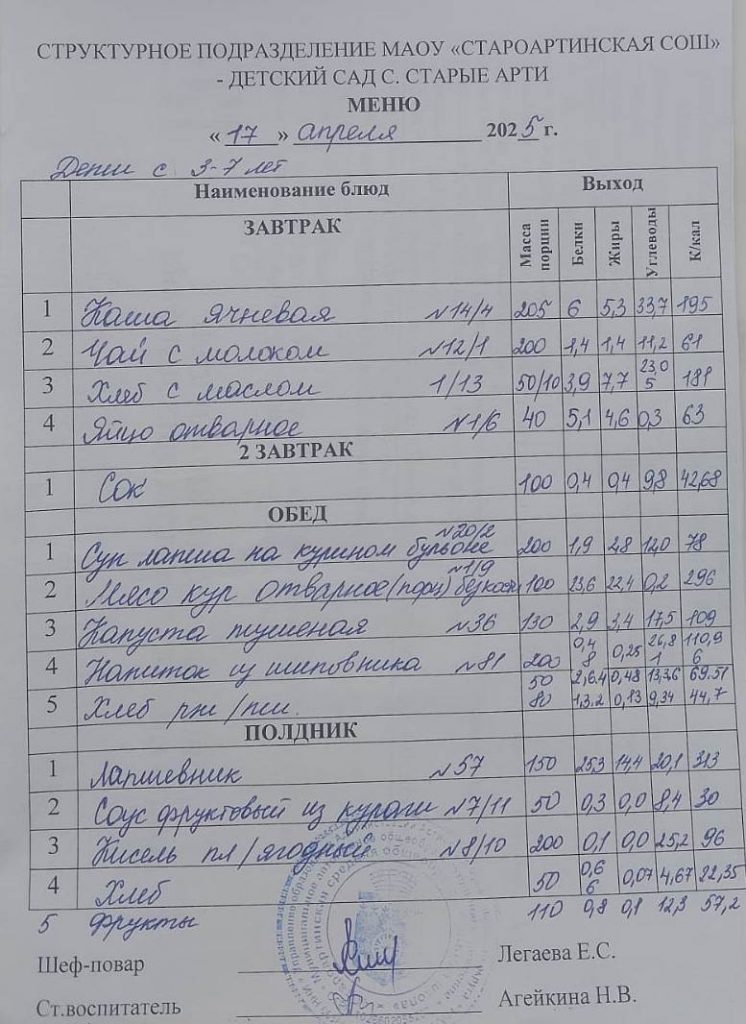 СТРУКТУРНОЕ ПОДРАЗДЕЛЕНИЕ МАОУ «СТАРОАРТИНСКАЯ СОШ»
- ДЕТСКИЙ САД С. СТАРЫЕ АРТИ
МЕНЮ
« 17 » апреля 2025 г.
Дети с 3-7 лет
Наименование блюд Выход
ЗАВТРАК Масса порции Белки Жиры Углеводы К/кал
1 Каша ячневая №14/4 205 6 5,3 33,7 195
2 Чай с молоком №12/1 200 1,4 1,4 11,2 61
3 Хлеб с маслом 1/13 50/10 3,9 7,7 23,05 181
4 Яйцо отварное №1/6 40 5,1 4,6 0,3 63
2 ЗАВТРАК
1 Сок 100 0,4 0,4 9,8 42,68
ОБЕД
1 Суп лапша на курином бульоне №20/2 200 1,9 2,8 12,0 78
2 Мясо кур отварное (порц) без кости №1/9 100 23,6 22,4 0,2 296
3 Капуста тушеная №36 130 2,9 3,4 17,5 109
4 Напиток из шиповника №81 200 0,48 0,25 26,81 110,96
5 Хлеб рж/пш. 50 2,64 0,48 13,36 69.51
80 1,3.2 0,13 9,34 44,7
ПОЛДНИК
1 Лапшевник №57 150 25,3 14,4 20,1 313
2 Соус фруктовый из кураги №7/11 50 0,3 0,0 8,4 30
3 Кисель пл/ягодный №8/10 200 0,1 0,0 25,2 96
4 Хлеб 50 0,66 0,07 4,67 22,35
5 фрукты 110 0,8 0,1 12,3 57,2
Шеф-повар Легаева Е.С.
Ст.воспитатель Агейкина Н.В.